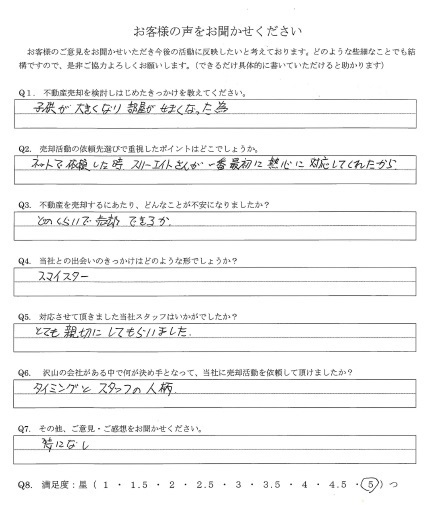 お客様の声をお聞かせください
お客様のご意見をお聞かせいただき今後の活動に反映したいと考えております。どのような些細なことでも結
構ですので、是非ご協力よろしくお願いします。（できるだけ具体的に書いていただけると助かります）
Q1. 不動産売却を検討しはじめたきっかけを教えてください。
子供が大きくなり部屋がせまくなった為
Q2. 売却活動の依頼先選びで重視したポイントはどこでしょうか。
ネットで依頼した時 スリーエイトさんが一番最初に熱心に対応してくれたから
Q3. 不動産を売却するにあたり、どんなことが不安になりましたか？
どのくらいで売却できるか.
Q4. 当社との出会いのきっかけはどのような形でしょうか？
スマイスター
Q5. 対応させて頂きました当社スタッフはいかがでしたか？
とても親切にしてもらいました.
Q6. 沢山の会社がある中で何が決め手となって、当社に売却活動を依頼して頂けましたか？
タイミングと スタッフの人柄.
Q7. その他、ご意見・ご感想をお聞かせください。
特になし
Q8. 満足度：星（ 1 ・ 1.5 ・ 2 ・ 2.5 ・ 3 ・ 3.5 ・ 4 ・ 4.5 ・ 5 ）つ